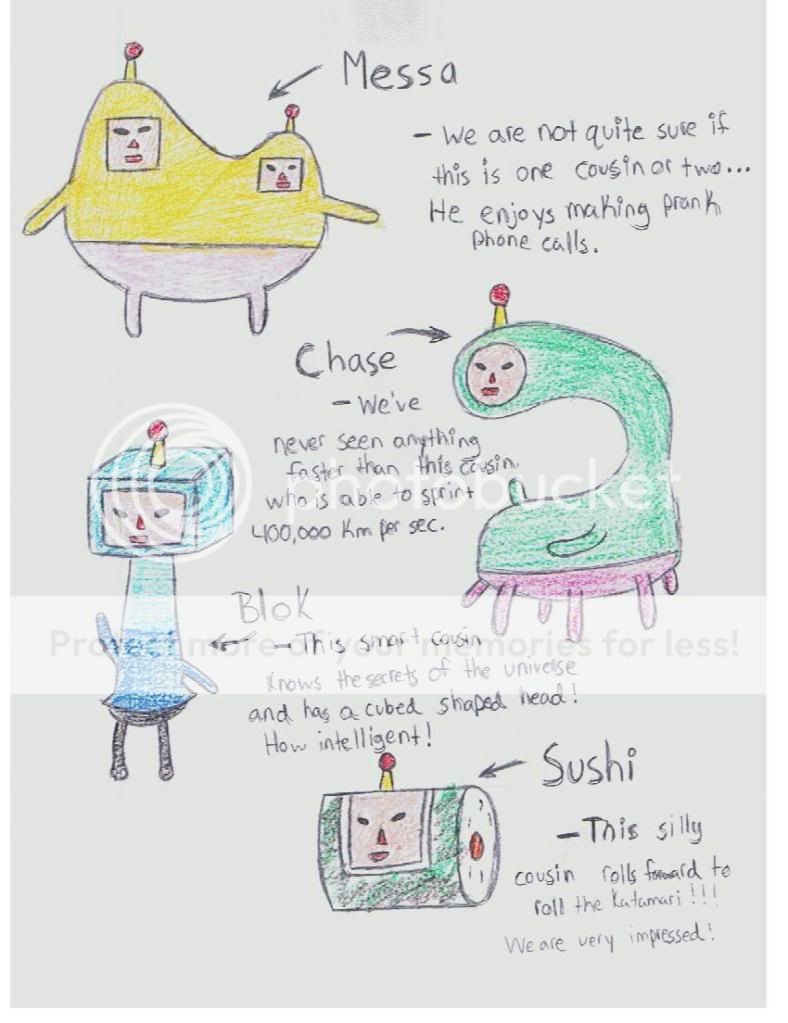 Messa
- We are not quite sure if
this is one cousin or two...
He enjoys making prank
Phone calls.
Chase
- We've
never seen anything
faster than this cousin,
who is able to sprint
400,000 Km per sec.
photobucket
Protect more of your memories for less!
Blok
- This smart cousin
Knows the secrets of the universe
and has a cubed shaped head!
How intelligent!
Sushi
- This silly
cousin rolls forward to
roll the Katamari!!!
We are very impressed!